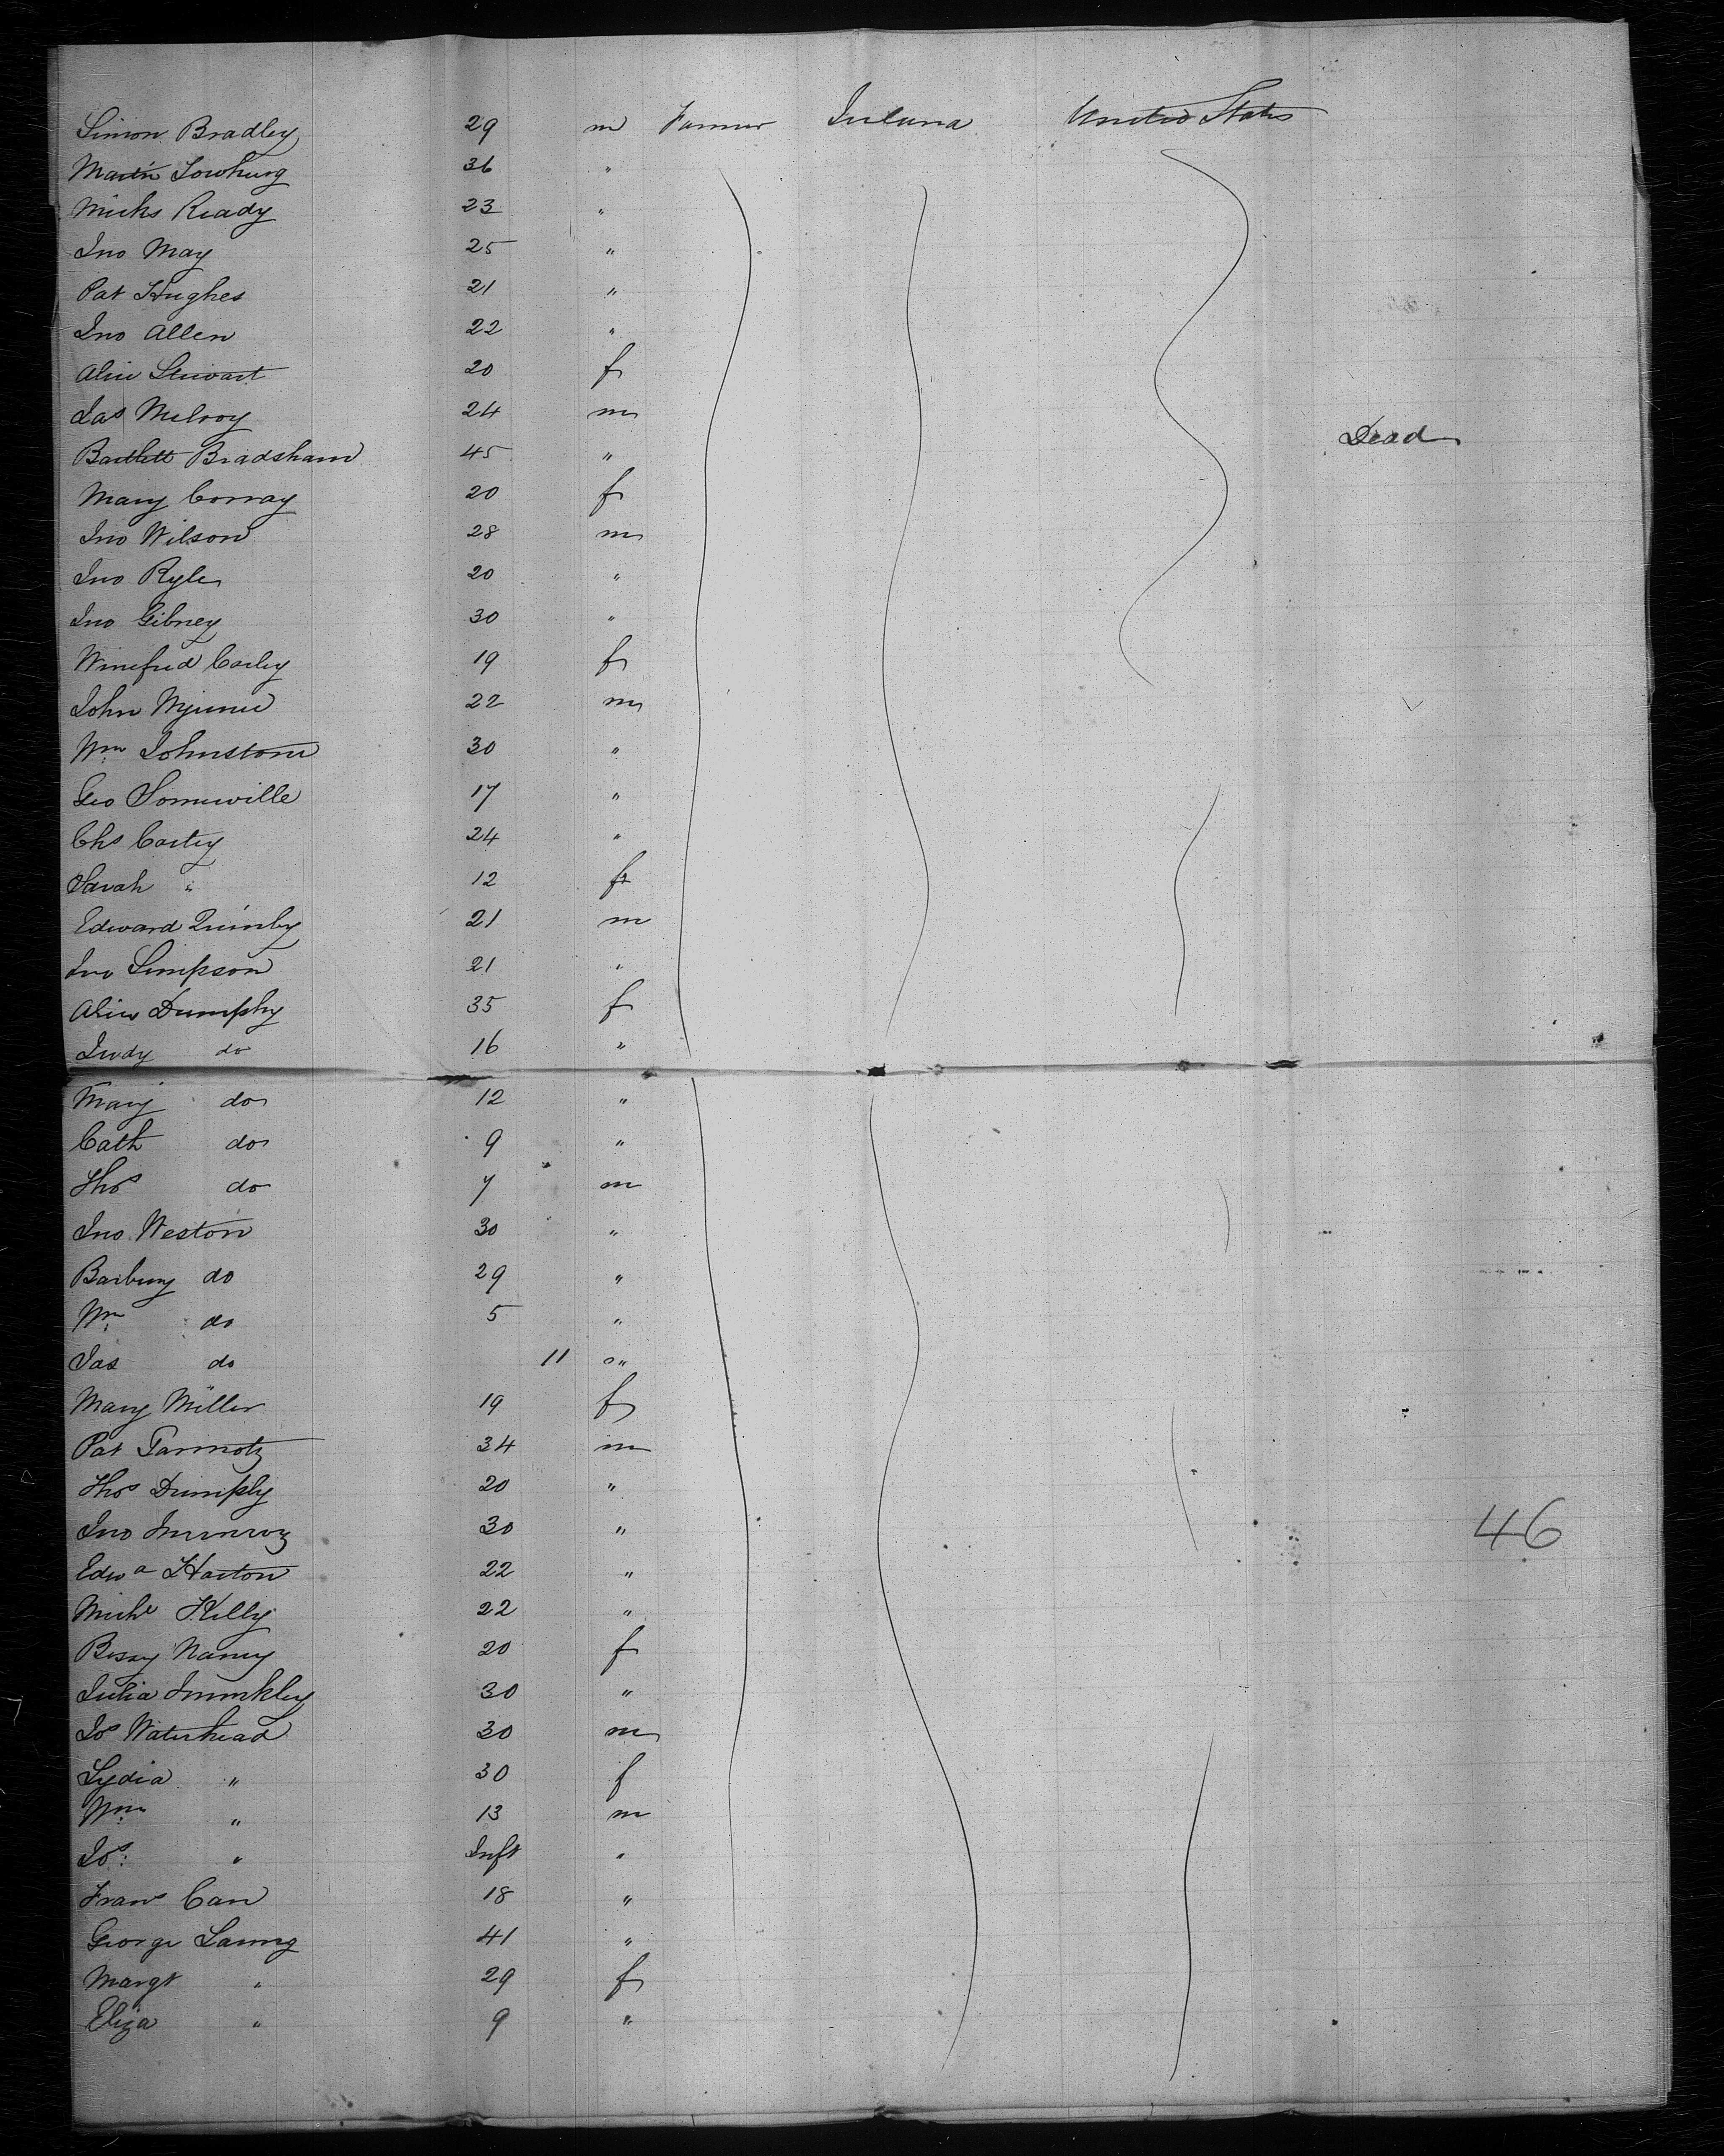 Simon Bradley 29 m Farmer Ireland United States
Martin 36 "
Michs Ready 23 "
Jno May 25 "
Pat Hughes 21 "
Jno Allen 22 "
Alice Stewart 20 f
Jas McIroy 24 m
Bartlett Bradshaw 45 " Dead
Mary Conray 20 f
Jno Wilson 28 m
Jno Ryle 20 "
Jno Gibney 30 "
Winefred Corley 19 f
John 22 m
Wm Johnstone 30 "
Geo Somerville 17 "
Chs Cartey 24 "
Sarah " 12 f
Edward Quimby 21 m
Jno Simpson 21 "
Alice Dumphy 35 f
Judy do 16 "
Mary do 12 "
Cath do 9 "
Thos do 7 m
Jno Weston 30 "
do 29 "
Wm do 5 "
Jas do 11 "
Mary Miller 19 f
Pat 34 m
Thos Dumphy 20 "
Jno 30 " 46
Edwd Harton 22 "
Michl Kelly 22 "
Bessy 20 f
Julia 30 "
Jos Waterhead 30 m
Lydia " 30 f
Wm " 13 m
Jos: " Inft "
Frans Carr 18 "
George Laing 41 "
Margt " 29 f
Eliza " 9 "